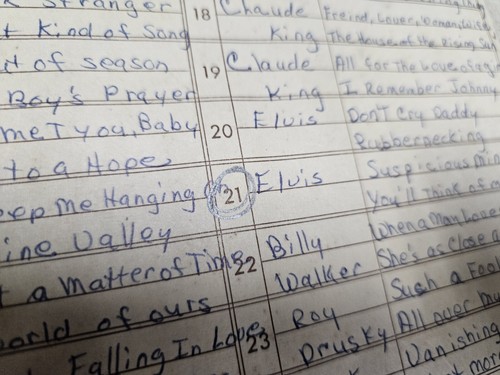 Stranger 18 Chaude Freind, Lover,
Kind of Song King The House of the Rising Sun
of season 19 Claude All for the Love of a
Boy's Prayer King I Remember Johnny
met you, Baby 20 Elvis Don't Cry Daddy
to a Hope Rubbernecking
me Hanging On 21 Elvis Suspicious
Valley You'll Think of
a Matter of Time 22 Billy When a Man Loves
world of ours Walker She's as close a
Falling In Love 23 Roy Such a Fool
Drusky All over
Vanishing